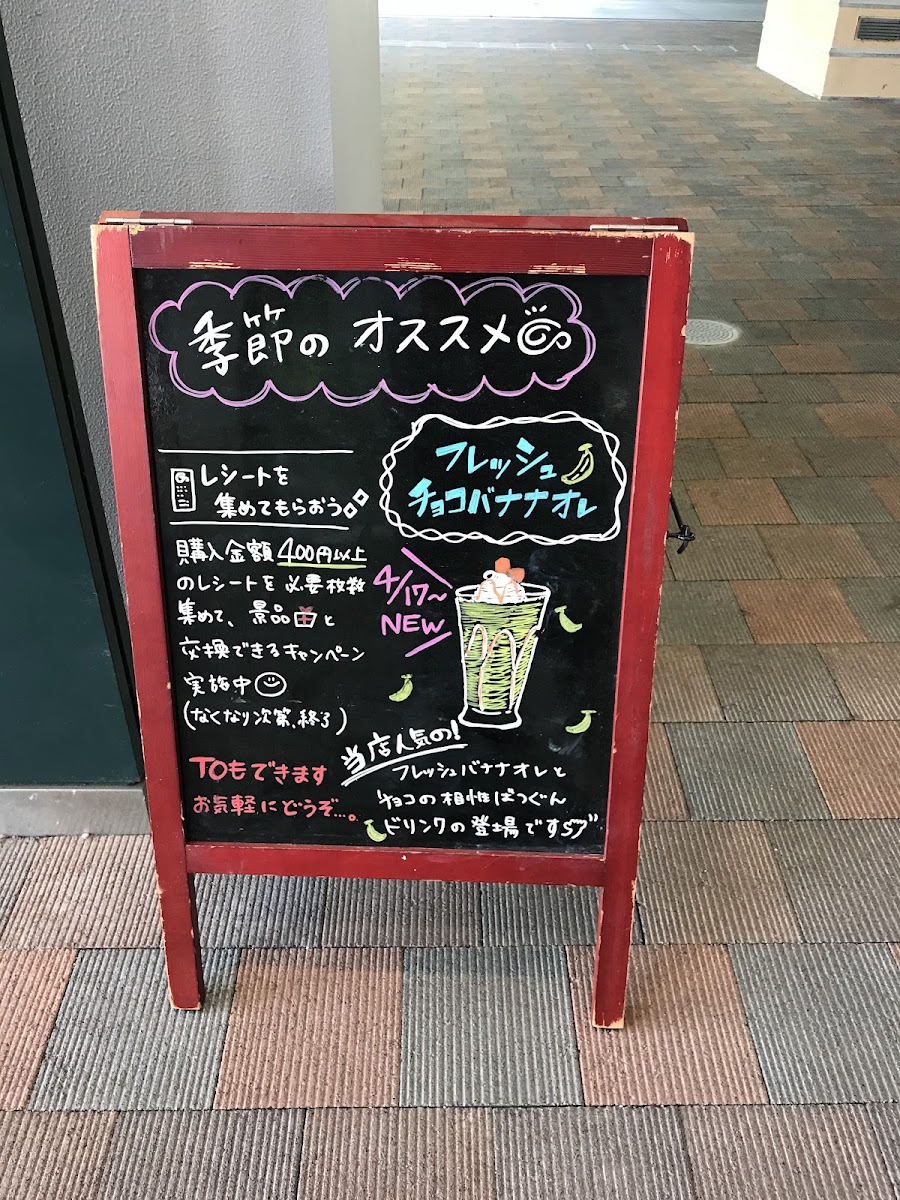 季節の オススメ
レシートを
集めてもらおう
購入金額 400円以上
のレシートを 必要枚数
集めて、景品と
交換できるキャンペーン
実施中
(なくなり次第、終了)
TOもできます
お気軽にどうぞ…。
フレッシュ
チョコバナナオレ
4/17~
NEW
当店人気の!
フレッシュバナナオレと
チョコの相性ばつぐん
ドリンクの登場です